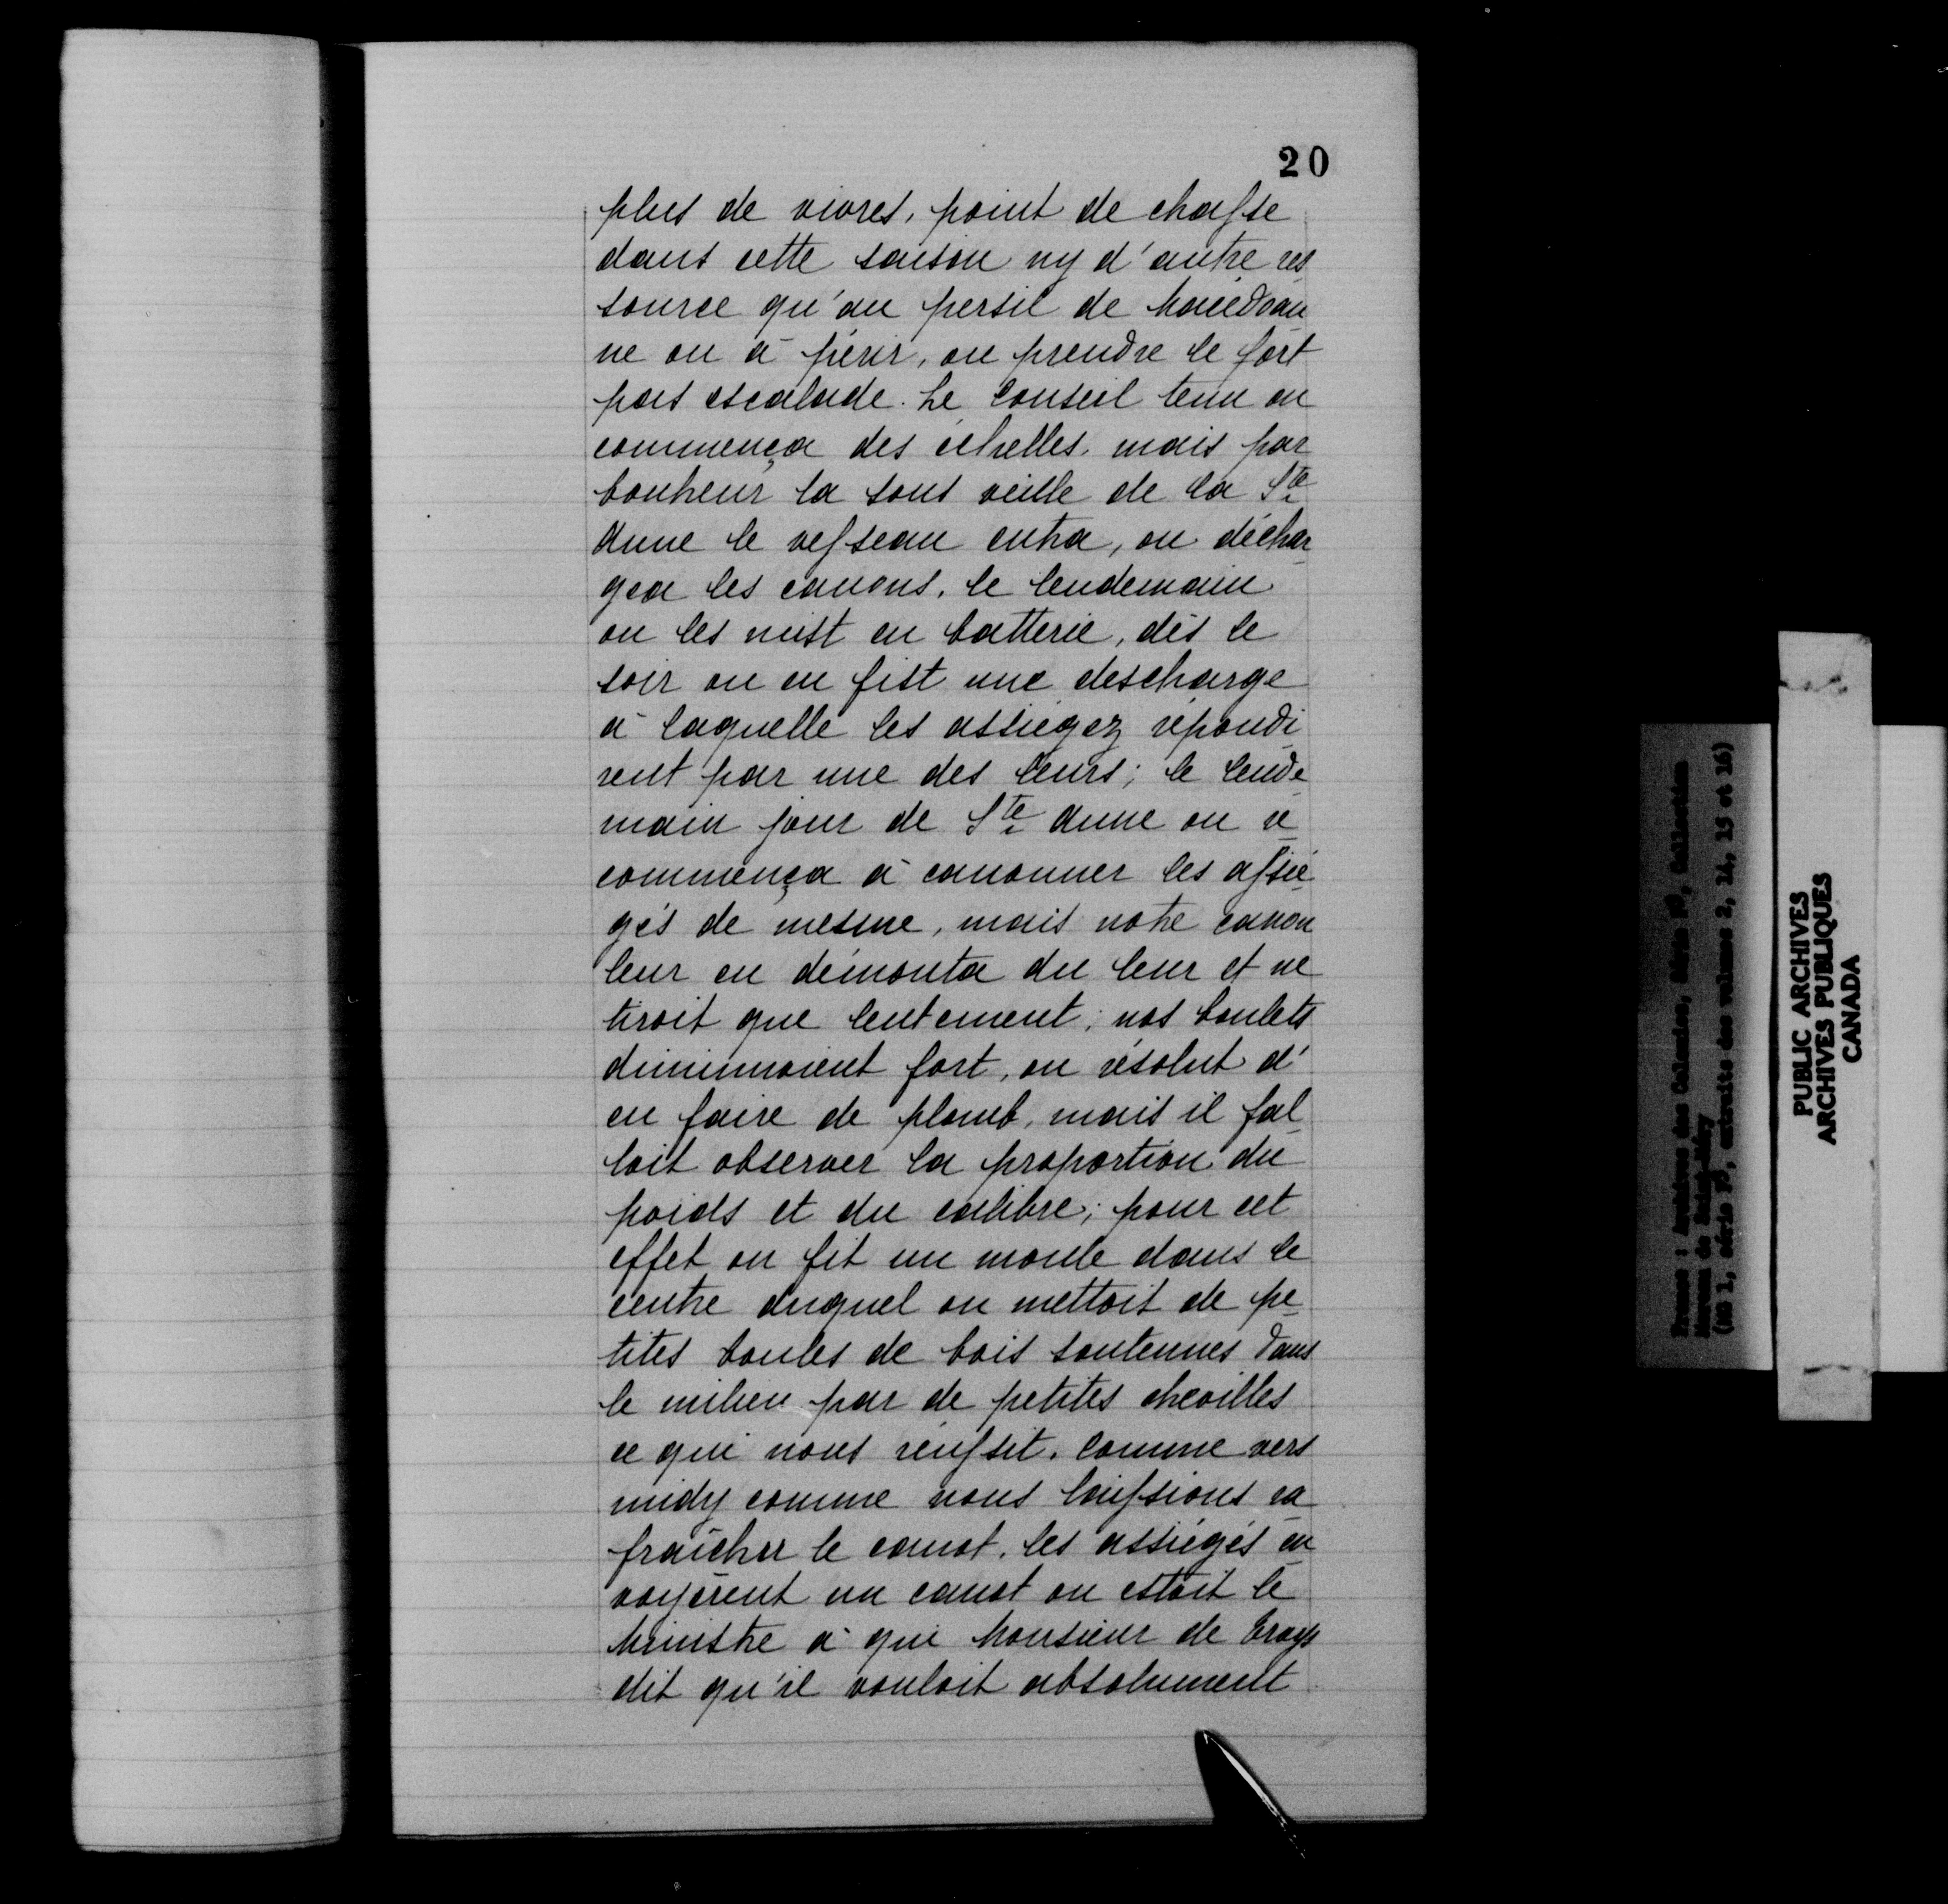 20
plus de vivres, point de chasse
dans cette saison ny d'autre res
source qu'au persil de Macedoau
ne ou à périr, ou prendre le fort
pars escalade. Le Conseil tenu on
commença des échelles. mais par
bonheur la sous veille de la Ste
Anne le vesseau entra, on déchar
gea les canons. le lendemain
on les mist en batterie, dès le
soir on en fist une descharge
à laquelle les assiégez répondi
rent par une des leurs; le lende
main jour de Ste Anne on re
commença à canonner les assié
gés de mesme, mais notre canon
leur en démonta du leur et ne
tiroit que lentement; nos boulets
diminuoient fort, on résolut d'
en faire de plomb, mais il fal
loit observer la proportion du
poids et du calibre; pour cet
effet on fit un moule dans le
centre duquel on mettoit de pe
tites boules de bois soutenues dans
le milieu par de petites chevilles
ce qui nous réussit. Comme vers
midy comme nous laissions ra
fraîcher le canot. les assiégés en
voyèrent un canot ou estoit le
Ministre à qui Monsieur de Troys
dit qu'il vouloit absolument
PUBLIC ARCHIVES
ARCHIVES PUBLIQUES
CANADA
France : Archives des Colonies, Série F3, Collection
Moreau de Saint-Méry
(MG 1, série F3, extraits des volumes 2, 14, 15 et 16)